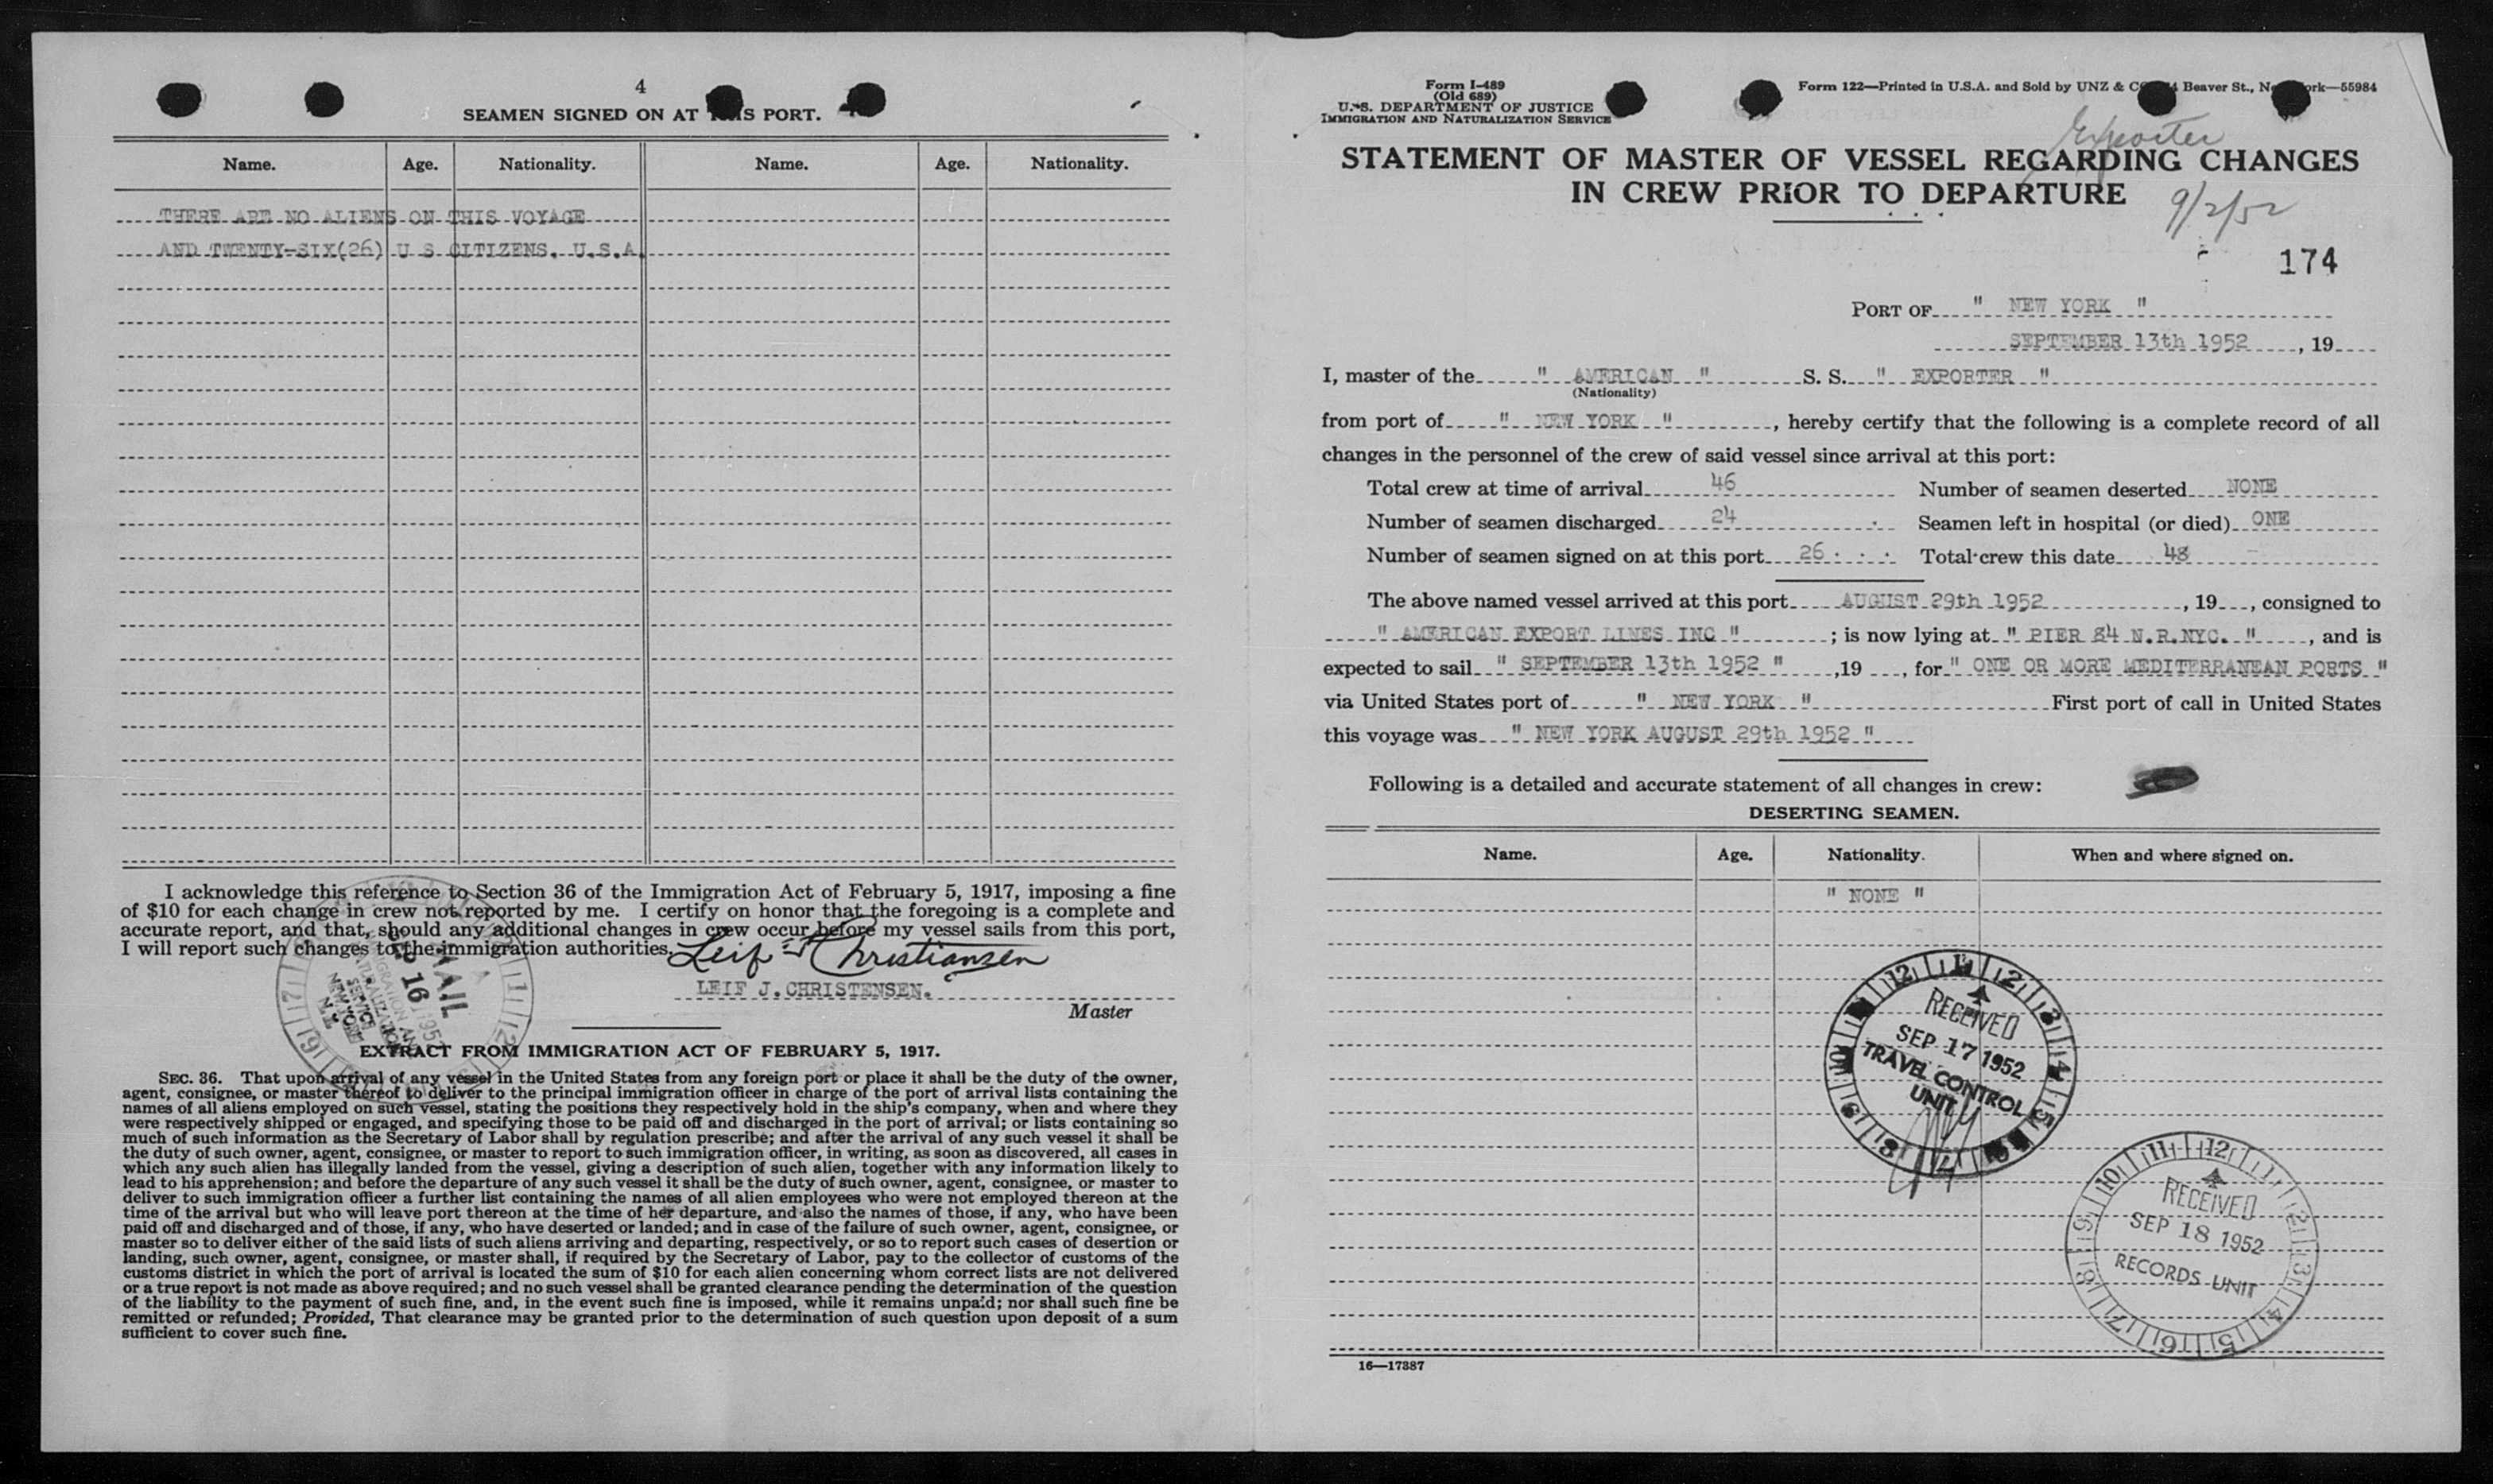 4
SEAMEN SIGNED ON AT THIS PORT.
Name. Age. Nationality. Name. Age. Nationality.
THERE ARE NO ALIENS ON THIS VOYAGE
AND TWENTY-SIX(26) U S CITIZENS. U.S.A.
I acknowledge this reference to Section 36 of the Immigration Act of February 5, 1917, imposing a fine
of $10 for each change in crew not reported by me. I certify on honor that the foregoing is a complete and
accurate report, and that, should any additional changes in crew occur before my vessel sails from this port,
I will report such changes to the immigration authorities.
Leif J Christiansen
LEIF J.CHRISTENSEN.
Master
MAIL
SEP 16 1952
IMMIGRATION AND
NATURALIZATION
SERVICE
NEW YORK
N.Y.
EXTRACT FROM IMMIGRATION ACT OF FEBRUARY 5, 1917.
SEC. 36. That upon arrival of any vessel in the United States from any foreign port or place it shall be the duty of the owner,
agent, consignee, or master thereof to deliver to the principal immigration officer in charge of the port of arrival lists containing the
names of all aliens employed on such vessel, stating the positions they respectively hold in the ship's company, when and where they
were respectively shipped or engaged, and specifying those to be paid off and discharged in the port of arrival; or lists containing so
much of such information as the Secretary of Labor shall by regulation prescribe; and after the arrival of any such vessel it shall be
the duty of such owner, agent, consignee, or master to report to such immigration officer, in writing, as soon as discovered, all cases in
which any such alien has illegally landed from the vessel, giving a description of such alien, together with any information likely to
lead to his apprehension; and before the departure of any such vessel it shall be the duty of such owner, agent, consignee, or master to
deliver to such immigration officer a further list containing the names of all alien employees who were not employed thereon at the
time of the arrival but who will leave port thereon at the time of her departure, and also the names of those, if any, who have been
paid off and discharged and of those, if any, who have deserted or landed; and in case of the failure of such owner, agent, consignee, or
master so to deliver either of the said lists of such aliens arriving and departing, respectively, or so to report such cases of desertion or
landing, such owner, agent, consignee, or master shall, if required by the Secretary of Labor, pay to the collector of customs of the
customs district in which the port of arrival is located the sum of $10 for each alien concerning whom correct lists are not delivered
or a true report is not made as above required; and no such vessel shall be granted clearance pending the determination of the question
of the liability to the payment of such fine, and, in the event such fine is imposed, while it remains unpaid; nor shall such fine be
remitted or refunded; Provided, That clearance may be granted prior to the determination of such question upon deposit of a sum
sufficient to cover such fine.
Form I-489
(Old 689)
U. S. DEPARTMENT OF JUSTICE
IMMIGRATION AND NATURALIZATION SERVICE
Form 122—Printed in U.S.A. and Sold by UNZ & CO. Beaver St., New York—55984
Exporter
STATEMENT OF MASTER OF VESSEL REGARDING CHANGES
IN CREW PRIOR TO DEPARTURE
9/2/52
174
PORT OF " NEW YORK "
SEPTEMBER 13th 1952, 19
I, master of the " AMERICAN " S. S. " EXPORTER "
(Nationality)
from port of " NEW YORK ", hereby certify that the following is a complete record of all
changes in the personnel of the crew of said vessel since arrival at this port:
Total crew at time of arrival 46 Number of seamen deserted NONE
Number of seamen discharged 24 Seamen left in hospital (or died) ONE
Number of seamen signed on at this port 26 Total crew this date 48
The above named vessel arrived at this port AUGUST 29th 1952, 19, consigned to
" AMERICAN EXPORT LINES INC "; is now lying at " PIER 84 N.R.NYC. ", and is
expected to sail " SEPTEMBER 13th 1952 ",19, for " ONE OR MORE MEDITERRANEAN PORTS "
via United States port of " NEW YORK " First port of call in United States
this voyage was " NEW YORK AUGUST 29th 1952 "
Following is a detailed and accurate statement of all changes in crew:
DESERTING SEAMEN.
Name. Age. Nationality. When and where signed on.
" NONE "
RECEIVED
SEP 17 1952
TRAVEL CONTROL
UNIT
RECEIVED
SEP 18 1952
RECORDS UNIT
16—17387